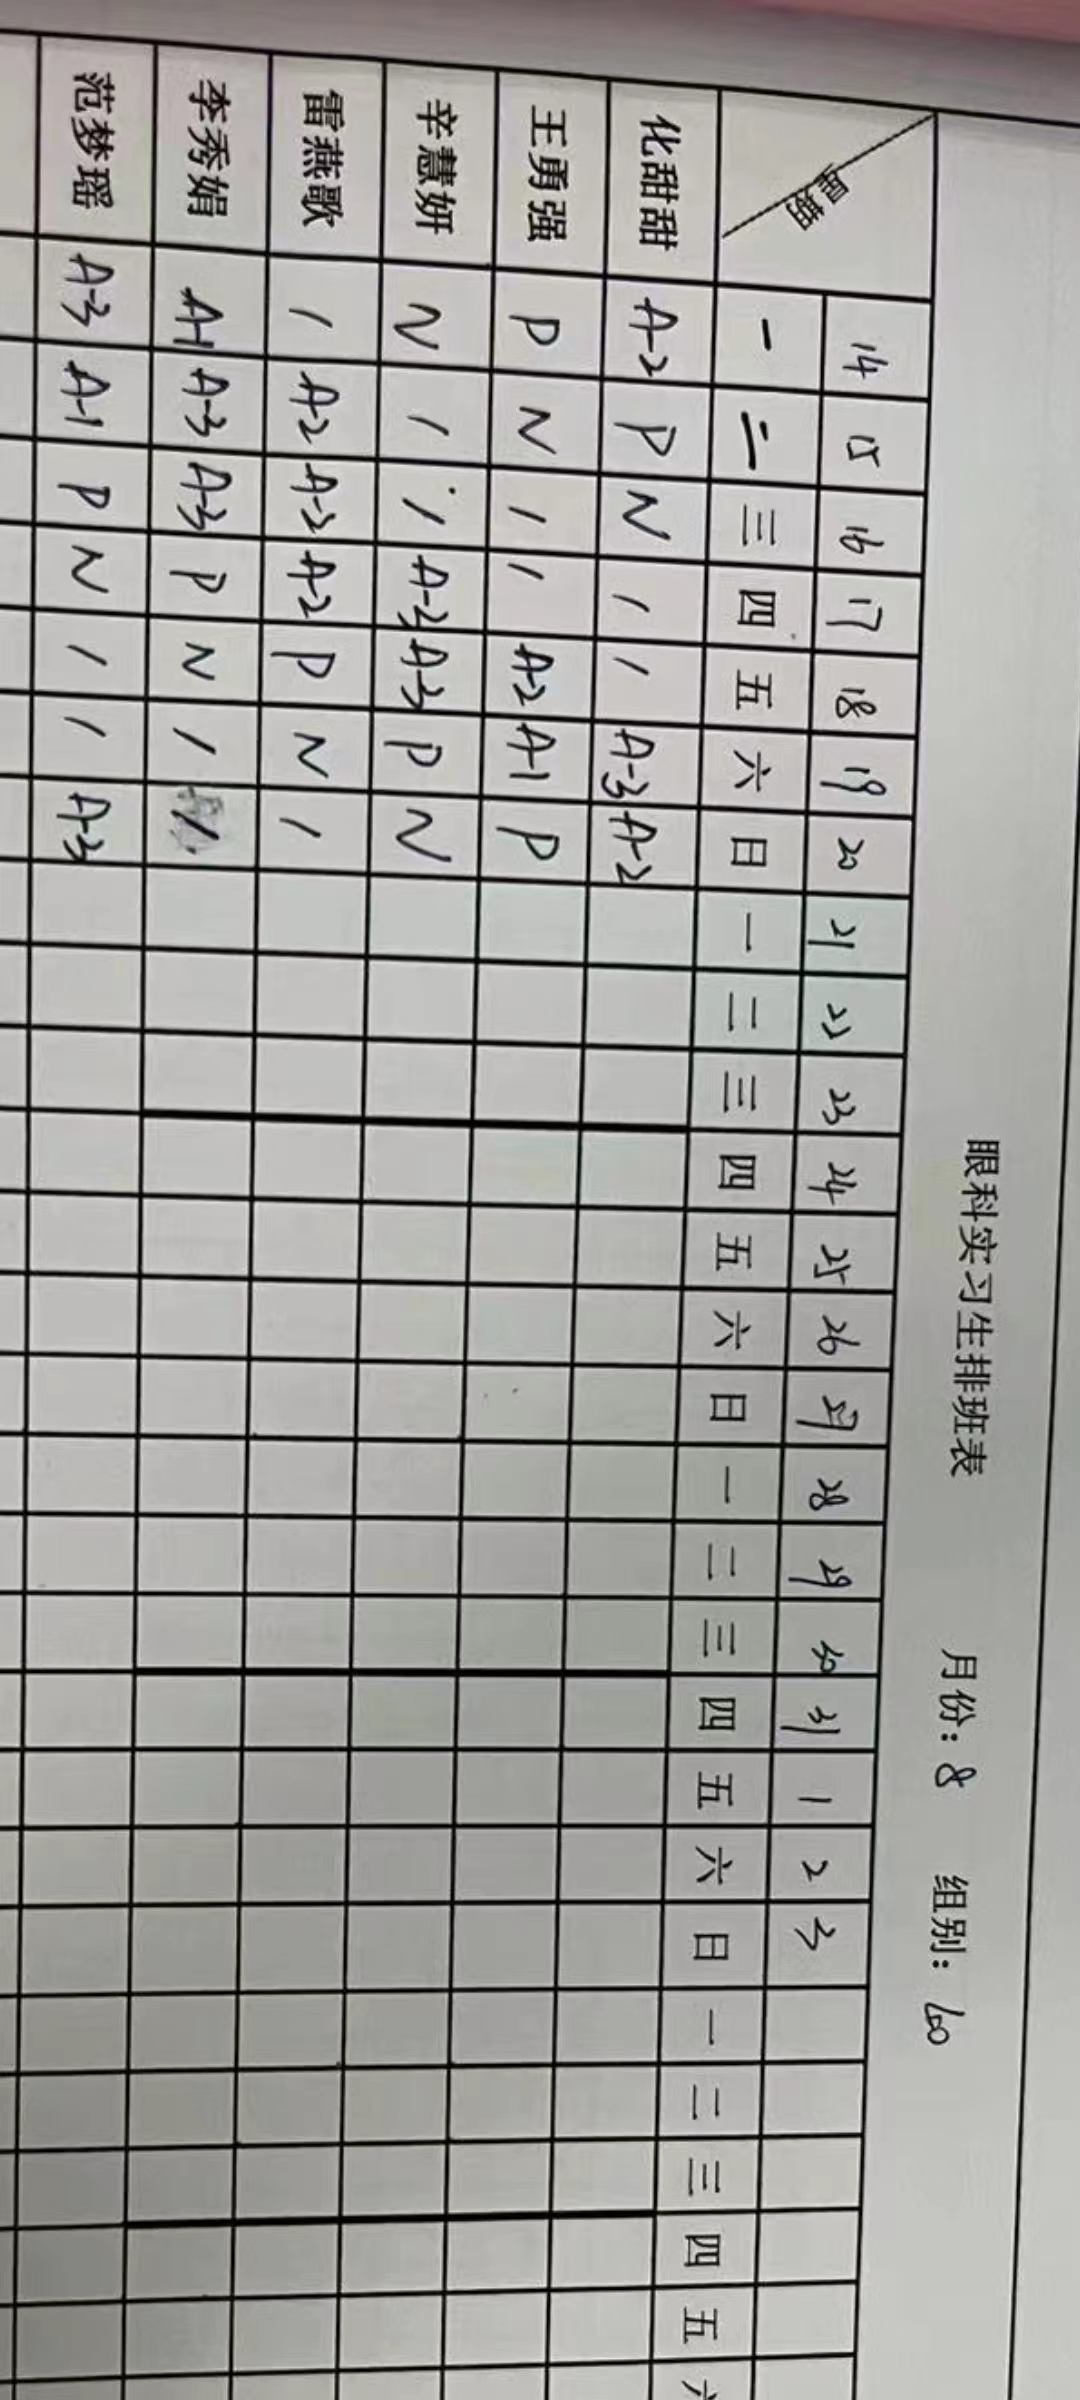 眼科实习生排班表 月份：8 组别：60
星期 14 15 16 17 18 19 20 21 22 23 24 25 26 27 28 29 30 31 1 2 3
一 二 三 四 五 六 日 一 二 三 四 五 六 日 一 二 三 四 五 六 日 一 二 三 四 五 六
化甜甜 A-2 P N / / A-3 A-2
王勇强 P N / / A-2 A-1 P
辛慧妍 N / / A-3 A-3 P N
雷燕歌 / A-2 A-2 A-2 P N /
李秀娟 A-1 A-3 A-3 P N / /
范梦瑶 A-3 A-1 P N / / A-3